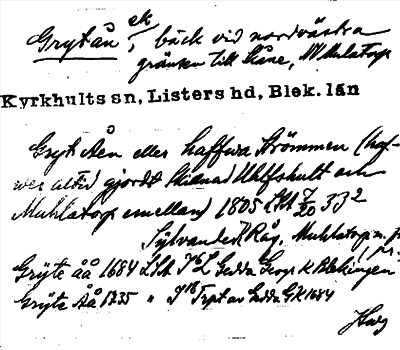 Grytån ek, bäck vid nordvästra
gränsen till Skåne, NV Mulatorp
Kyrkhults sn, Listers hd, Blek. län
Gryt Åen eller haffwa Strömmen (haf-
wer altid gjordt Skillnad Ulfshult och
Muhlatorp emellan) 1805 LSA 33²
Sylvander Råg. Muhlatorp
Gryte åå 1684 LSA Gedda Geogr. k Blekingen
Gryte Åå 1735 " Trpt av Gedda GK 1684